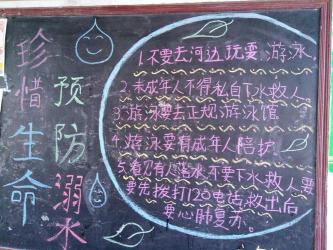 珍惜生命
预防溺水
1.不要去河边玩耍游泳.
2.未成年人不得私自下水救人.
3.游泳要去正规游泳馆
4.游泳要有成年人陪护
5.看见有人溺水,不要下水救人要
要先拨打120电话,救出后
要心肺复苏.